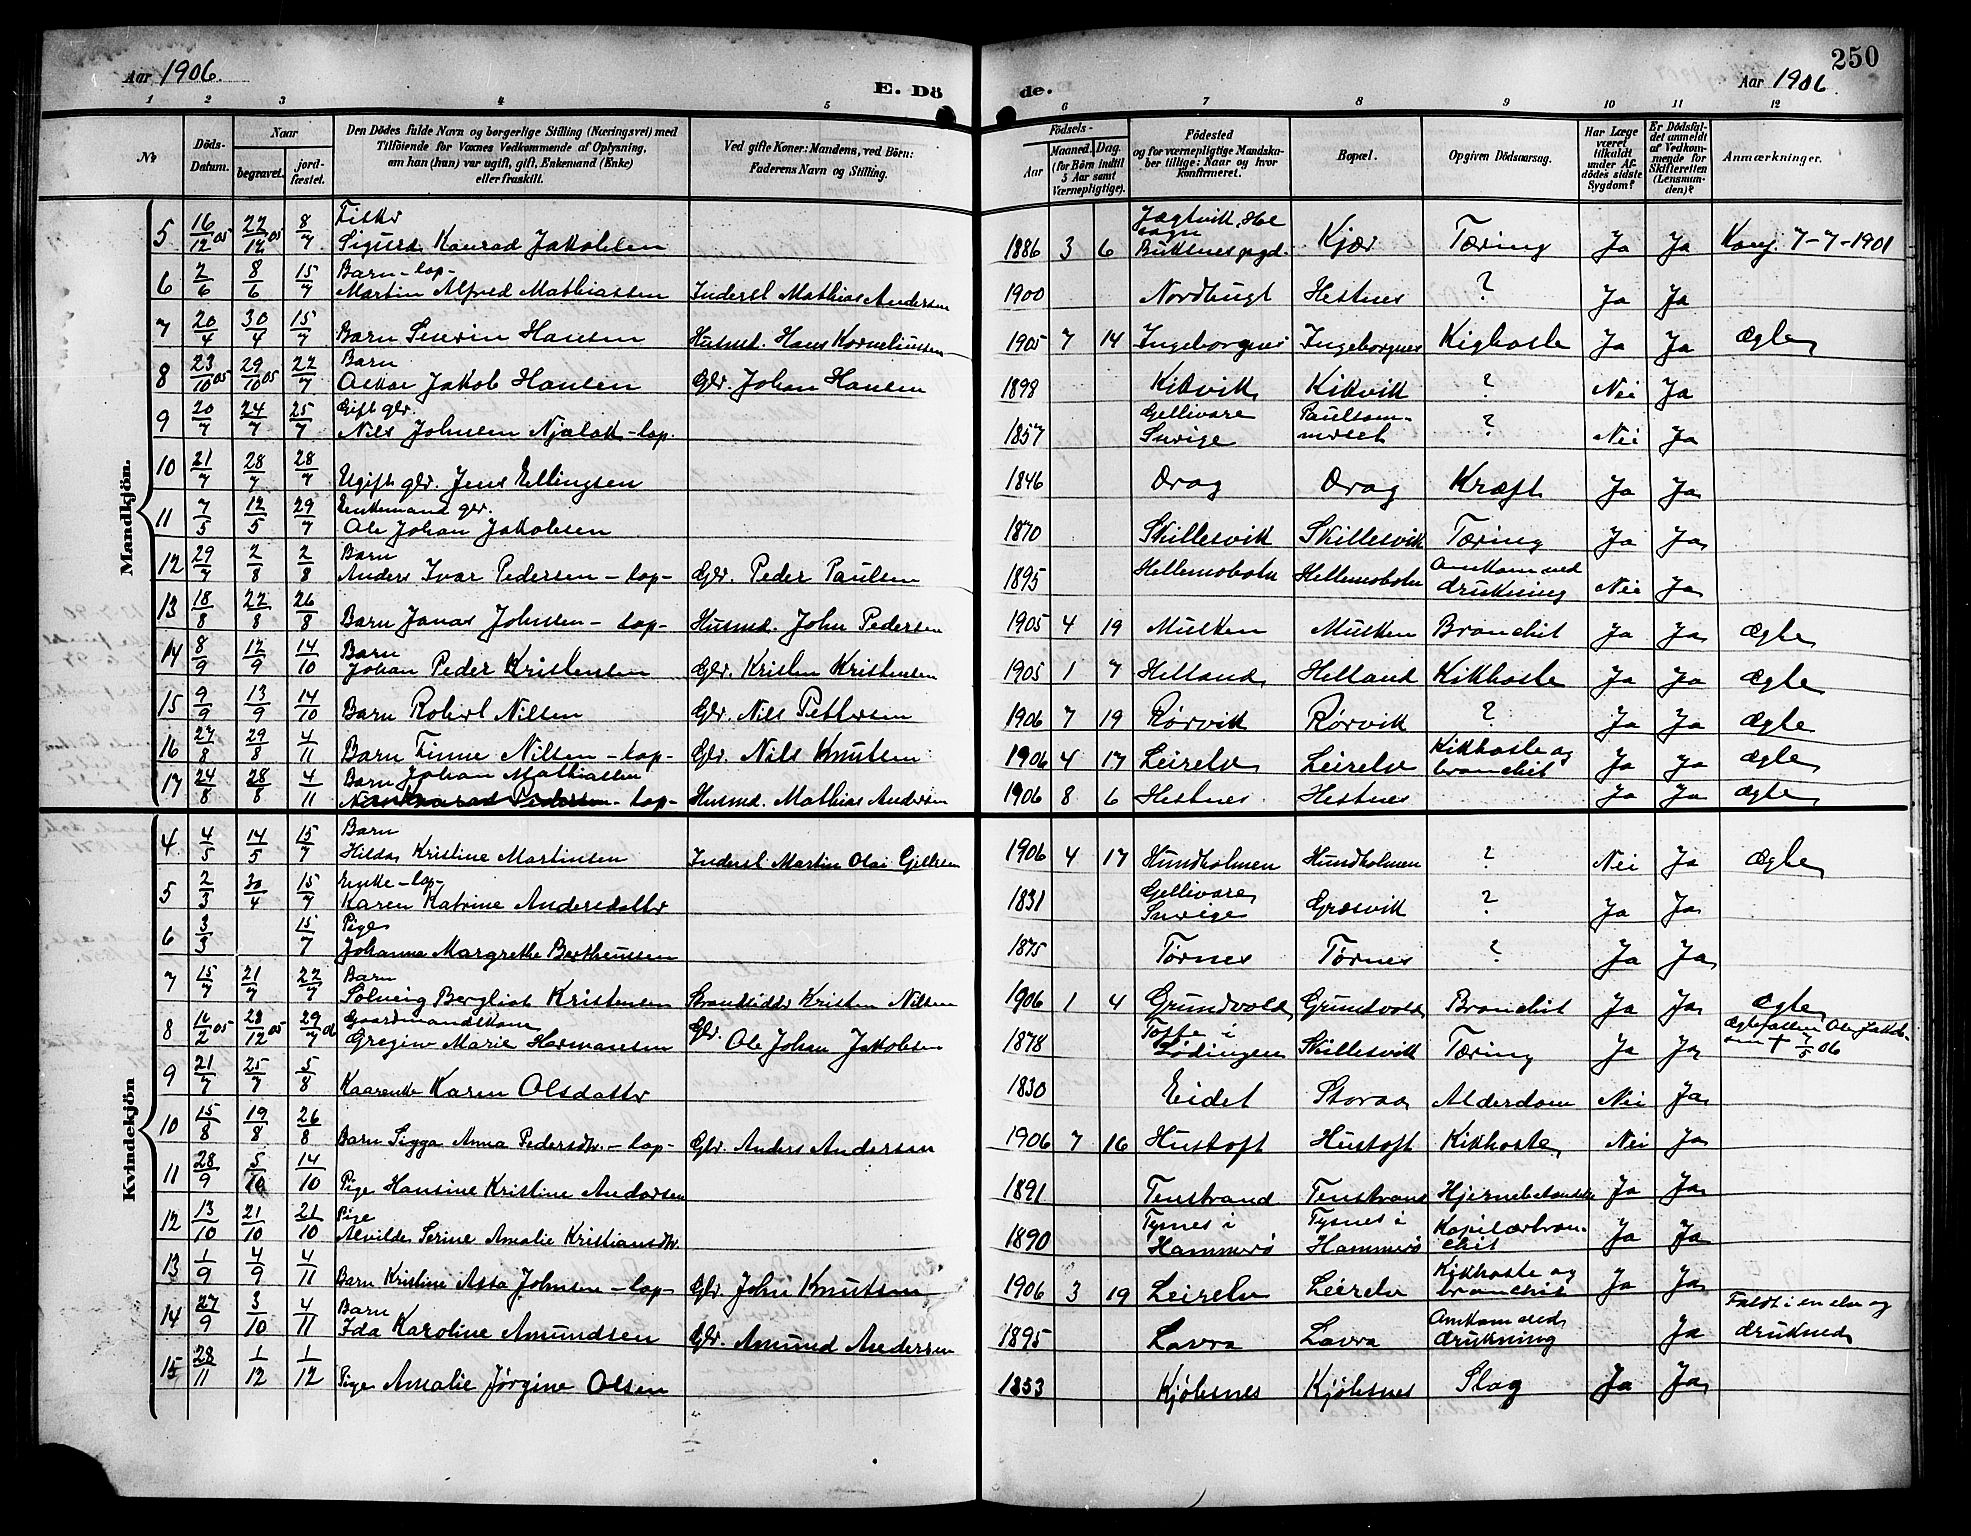 250
Aar 1906.
E. Dö
de.
Aar 1906.
1 2 3 4 5 6 7 8 9 10 11 12
No
Döds-
Datum.
Naar
begravet.
jord-
fæstet.
Den Dödes fulde Navn og borgerlige Stilling (Næringsvei) med
Tilföiende for Voxnes Vedkommende af Oplysning,
om han (hun) var ugift, gift, Enkemand (Enke)
eller fraskilt.
Ved gifte Koner: Mandens, ved Börn:
Faderens Navn og Stilling.
Födsels-
Aar
Maaned.
Dag.
(for Börn indtil
5 Aar samt
Værnepligtige).
Födested
og for værnepligtige Mandska-
ber tillige: Naar og hvor
konfirmeret.
Bopæl.
Opgiven Dödsaarsag.
Har Læge
været
tilkaldt
under Af-
dödes sidste
Sygdom?
Er Dödsfal-
det anmeldt
af Vedkom-
mende for
Skifteretten
(Lensman-
den)?
Anmærkninger.
Mandkjön.
5 16/12 05 22/12 05 8/7 Fisker
Sigurd Konrad Jakobsen 1886 3 6 Buksnes pgd. Kjær Tæring Ja Ja Konf. 7-7-1901
6 2/6 8/6 15/7 Barn -lap-
Martin Alfred Mathiassen Inderst Mathias Andersen 1900 Nordbugt Hestnes ? Ja Ja
7 20/4 30/4 15/7 Barn Severin Hansen Husmd. Hans Korneliussen 1905 7 14 Ingeborgnes Ingeborgnes Kighoste Ja Ja Ægte
8 23/10 05 29/10 05 22/7 Barn
Oskar Jakob Hansen Gbr. Johan Hansen 1898 Kikvik Kikvik ? Nei Ja
9 20/7 24/7 25/7 Gift gbr.
Nils Johnsen Njalak -lap. 1857 Gellivare
Sverige ? Nei Ja
10 21/7 28/7 28/7 Ugift gbr. Jens Ellingsen 1846 Drag Drag Kræft Ja Ja
11 7/5 12/5 29/7 Enkemand gbr.
Ole Johan Jakobsen 1870 Skillesvik Skillesvik Tæring Ja Ja
12 29/7 2/8 2/8 Barn
Anders Ivar Pedersen -lap- Gbr. Peder Paulsen 1895 Hellemobotn Hellemobotn Omkom ved
drukning Nei Ja
13 18/8 22/8 26/8 Barn Jonas Johnsen -lap- Husmd. John Pedersen 1905 4 19 Musken Musken Bronchit Ja Ja Ægte
14 8/9 12/9 14/10 Barn
Johan Peder Kristensen Gbr. Kristen Kristensen 1905 1 7 Helland Helland Kikhoste Ja Ja Ægte
15 9/9 13/9 14/10 Barn Robert Nilsen Gbr. Nils Pettersen 1906 7 19 Rørvik Rørvik ? Ja Ja Ægte
16 27/8 29/8 4/11 Barn Finne Nilsen -lap- Gbr. Nils Knutsen 1906 4 17 Leirelv Leirelv Kikhoste og
bronchit Ja Ja Ægte
17 24/8 28/8 4/11 Barn Johan Mathiassen
-lap- Husmd. Mathias Andersen 1906 8 6 Hestnes Hestnes Ja Ja Ægte
Kvindekjön
4 4/5 14/5 15/7 Barn
Hilda Kristine Martinsen Inderst Martin Olai 1906 4 17 Hundholmen Hundholmen ? Nei Ja Ægte
5 2/3 30/4 15/7 Enke -lap-
Karen Katrine Andersdatter 1831 Gellivare
Sverige Græsvik ? Ja Ja
6 3/3 15/7 Pige
Johanna Margrethe Bertheussen 1875 Tørnes Tørnes ? Ja Ja
7 15/7 21/7 22/7 Barn
Solveig Bergliot Kristensen Strandsidder Kristen Nilsen 1906 1 4 Grundvold Grundvold Bronchit Ja Ja Ægte
8 05 28/12 05 29/7 06 Gaardmandskone
Gregine Marie Hermansen Gbr. Ole Johan Jakobsen 1878 i
Lødingen Skillesvik Tæring Ja Ja Ægtefællen Ole Jakob-
sen † 7/5 06
9 21/7 25/7 5/8 Kaarenke Karen Olsdatter 1830 Eidet Storaa Alderdom Nei Ja
10 15/8 19/8 26/8 Barn Sigga Anna Pedersdtr. -lap- Gbr. Anders Andersen 1906 7 16 Hustoft Hustoft Kikhoste Nei Ja
11 28/9 5/10 14/10 Pige Hansine Kristine Andersen 1891 Tenstrand Tenstrand Ja Ja
12 13/10 21/10 21/10 Pige
Alvilde Serine Amalie Kristiansdtr. 1890 Tysnes i
Hammerø Tysnes i
Hammerø Kapilærbron-
chit Ja Ja
13 1/9 4/9 4/11 Barn Kristine Assa Johnsen -lap- Gbr. John Knutsen 1906 3 19 Leirelv Leirelv Kikhoste og
bronchit Ja Ja
14 27/9 3/10 4/11 Barn
Ida Karoline Amundsen Gbr. Amund Andersen 1895 Lavra Lavra Omkom ved
drukning Ja Faldt i en elv og
druknede
15 28/11 1/12 1/12 Pige Amalie Jørgine Olsen 1853 Kjøbsnes Kjøbsnes Slag Ja Ja